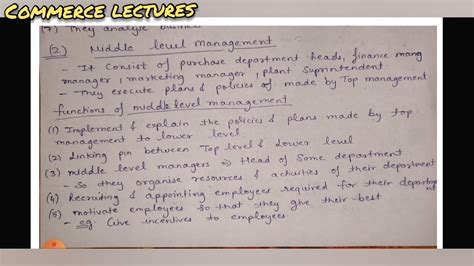 COMMERCE LECTURES
(7) They analyse business
(2) Middle level management
- It Consist of purchase department heads, finance mang
manager, marketing manager, plant Suprintendent.
- They execute plans & policies of made by Top management
functions of middle level management
(1) Implement & explain the policies & plans made by top
management to lower level
(2) Linking pin between Top level & Lower level
(3) middle level managers ⇒ Head of Some department
- So they organise resources & activities of their department
(4) Recruiting & appointing employees required for their departm
nt
(5) motivate employees so that they give their best
- eg Give incentives to employees.